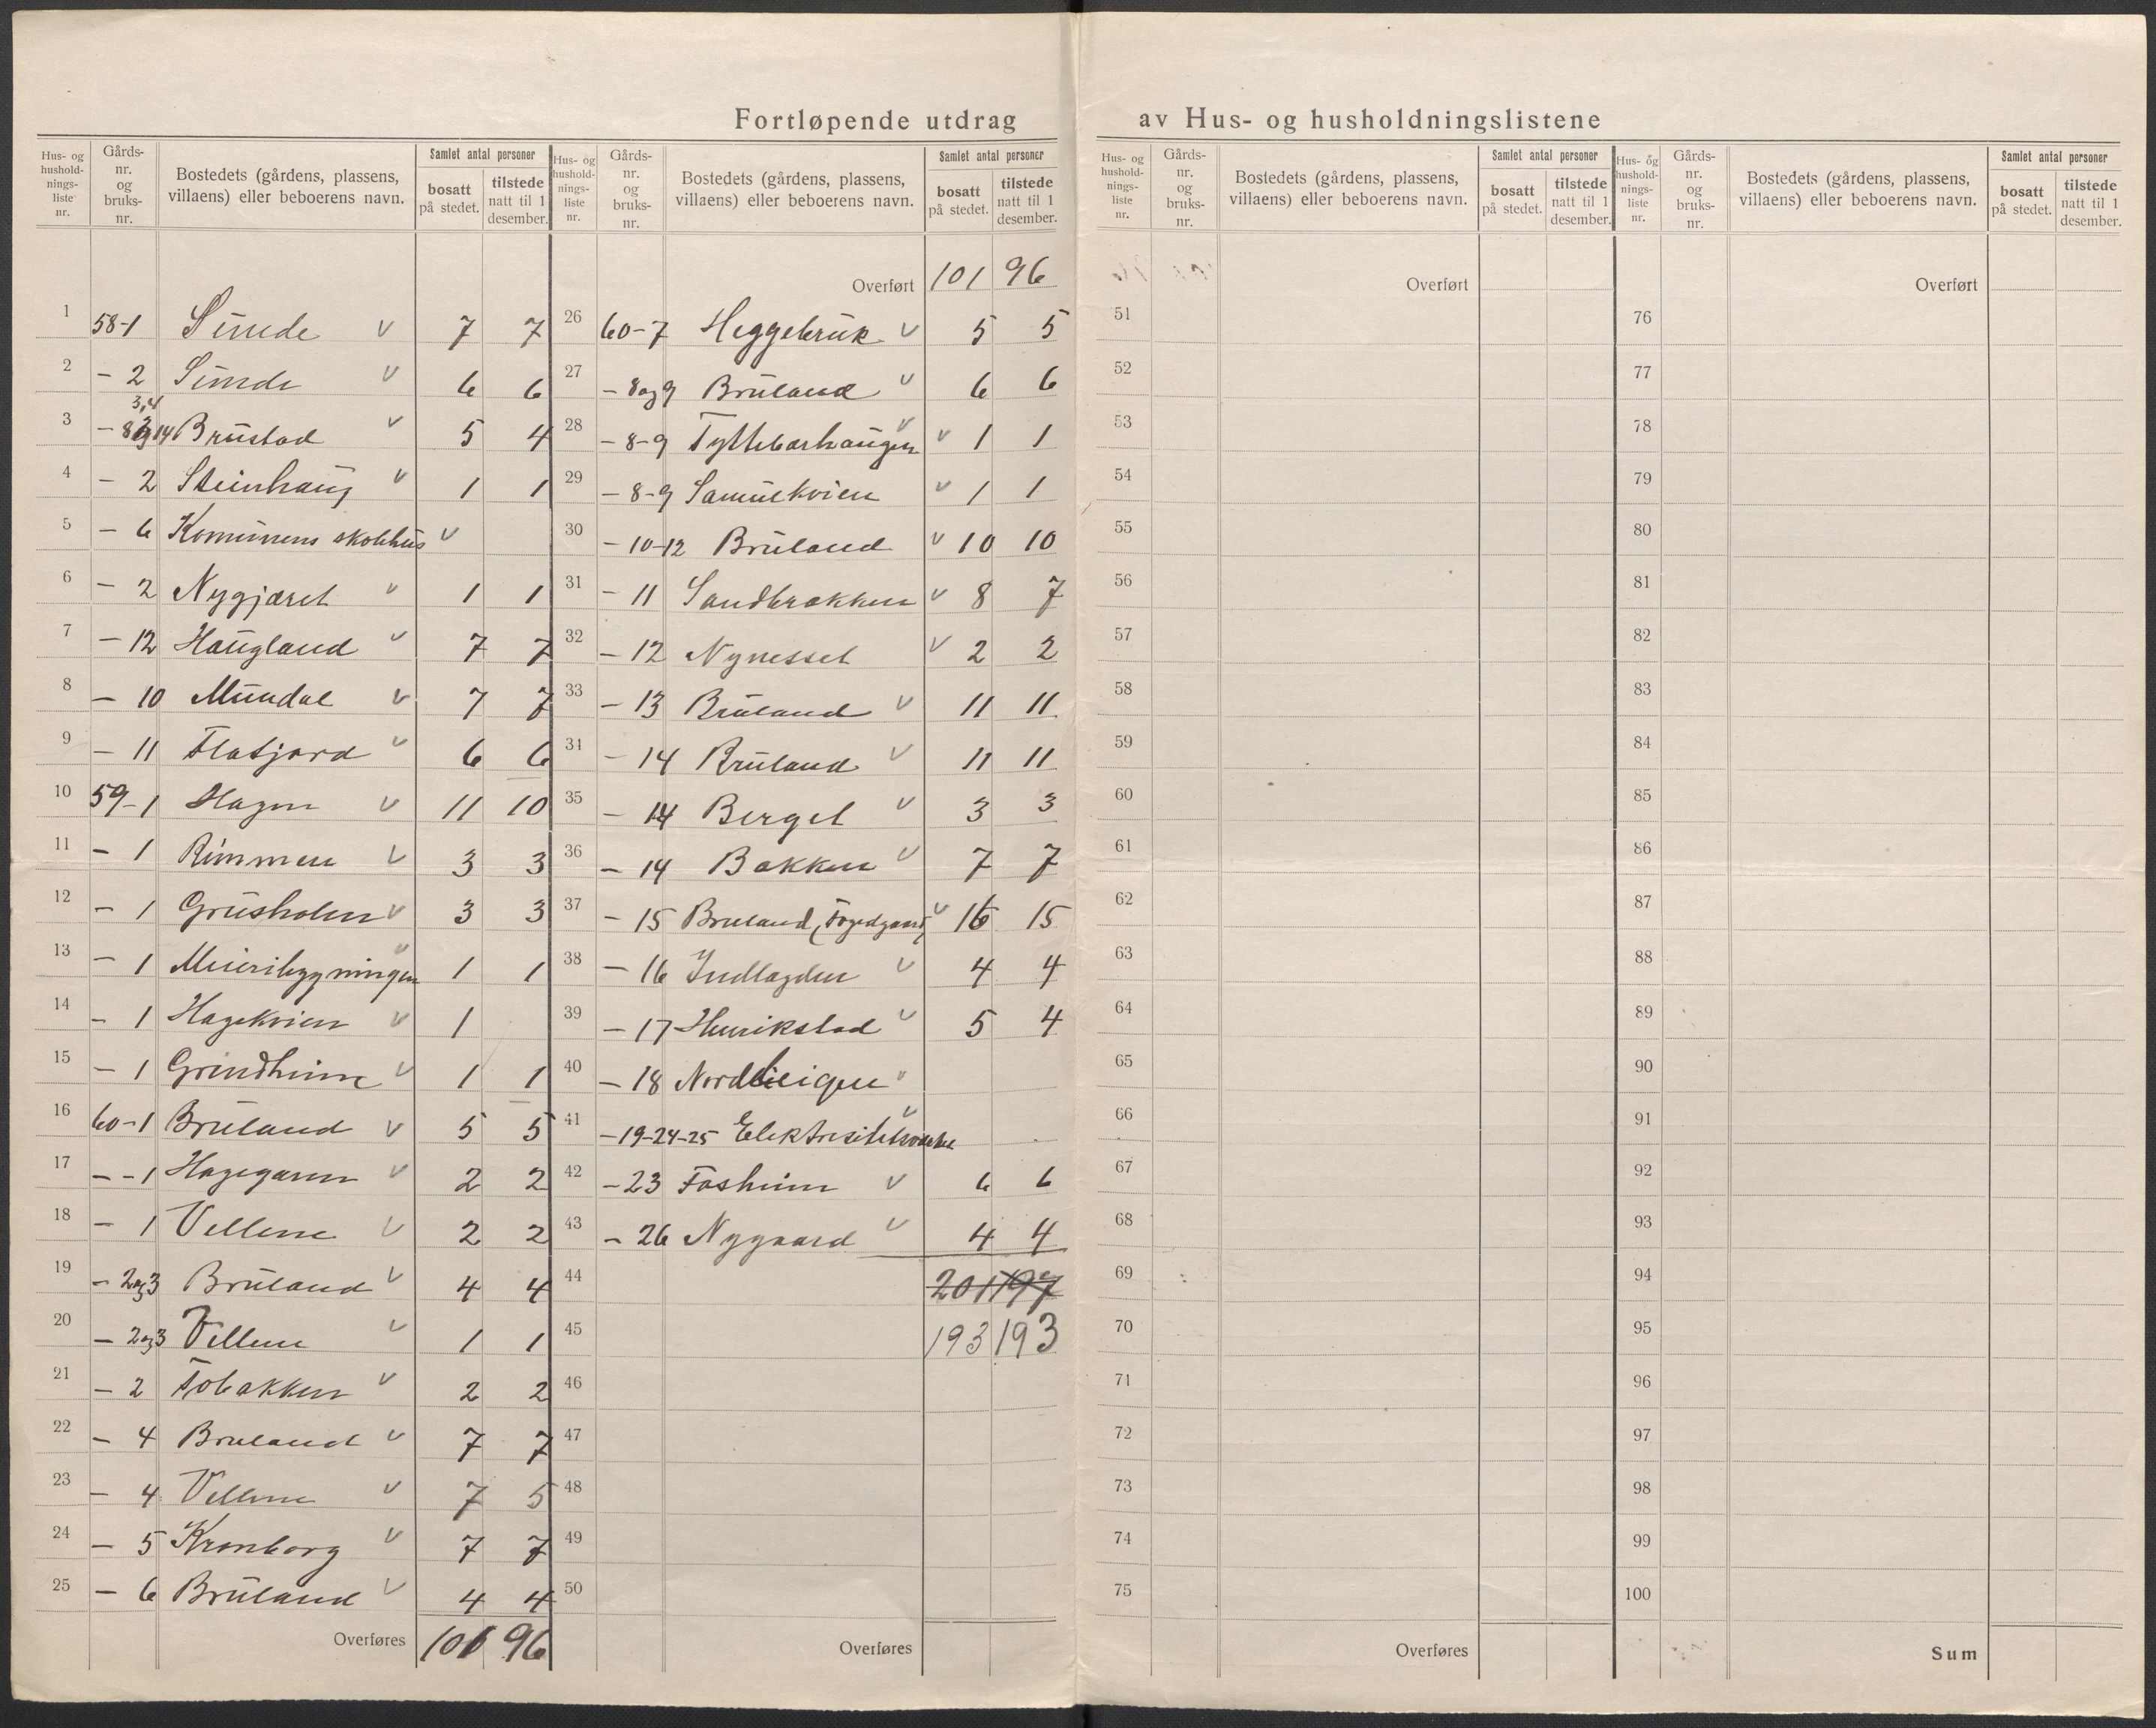 Fortløpende utdrag av Hus- og husholdningslistene
Hus- og hushold- nings- liste nr. | Gårds- nr. og bruks- nr. | Bostedets (gårdens, plassens, villaens) eller beboerens navn. | Samlet antal personer | bosatt på stedet. | tilstede natt til 1 desember.
1 58-1 Sunde v 7 7
2 - 2 Sunde v 6 6
3 - 3,4 8 og 14 Brustad v 5 4
4 - 2 Steinhaug v 1 1
5 - 6 Komunens skolehus v
6 - 2 Nygjæret v 1 1
7 - 12 Haugland v 7 7
8 - 10 Mundal v 7 7
9 - 11 Flatjord v 6 6
10 59-1 Hagen v 11 10
11 - 1 Rimmen v 3 3
12 - 1 Grusholen v 3 3
13 - 1 Meieribygningen v 1 1
14 - 1 Hagekvien v 1
15 - 1 Grindheim v 1 1
16 60-1 Bruland v 5 5
17 - - 1 Hagegaren v 2 2
18 - 1 Vellene v 2 2
19 - 2 og 3 Bruland v 4 4
20 - 2 og 3 Vellene v 1 1
21 - 2 Tobakken v 2 2
22 - 4 Bruland v 7 7
23 - 4 Vellene v 7 5
24 - 5 Kronborg v 7 7
25 - 6 Bruland v 4 4
Overføres 101 96
Hus- og hushold- nings- liste nr. | Gårds- nr. og bruks- nr. | Bostedets (gårdens, plassens, villaens) eller beboerens navn. | Samlet antal personer | bosatt på stedet. | tilstede natt til 1 desember.
Overført 101 96
26 60-7 Heggebruk v 5 5
27 - 8 og 9 Bruland v 6 6
28 - 8-9 Tyttebærhaugen v 1 1
29 - 8-9 Samuelkvien v 1 1
30 - 10-12 Bruland v 10 10
31 - 11 Sandbrakken v 8 7
32 - 12 Nynesset v 2 2
33 - 13 Bruland v 11 11
31 - 14 Bruland v 11 11
35 - 14 Berget v 3 3
36 - 14 Bakken v 7 7
37 - 15 Bruland (Fogedgaard) v 16 15
38 - 16 Indlagden v 4 4
39 - 17 Henrikstad v 5 4
40 - 18 v
41 - 19-24-25 v
42 - 23 Fosheim v 6 6
43 - 26 Nygaard v 4 4
44 201 197
45 193 193
46
47
48
49
50
Overføres
Hus- og hushold- nings- liste nr. | Gårds- nr. og bruks- nr. | Bostedets (gårdens, plassens, villaens) eller beboerens navn. | Samlet antal personer | bosatt på stedet. | tilstede natt til 1 desember.
Overført
51
52
53
54
55
56
57
58
59
60
61
62
63
64
65
66
67
68
69
70
71
72
73
74
75
Overføres
Hus- og hushold- nings- liste nr. | Gårds- nr. og bruks- nr. | Bostedets (gårdens, plassens, villaens) eller beboerens navn. | Samlet antal personer | bosatt på stedet. | tilstede natt til 1 desember.
Overført
76
77
78
79
80
81
82
83
84
85
86
87
88
89
90
91
92
93
94
95
96
97
98
99
100
Sum